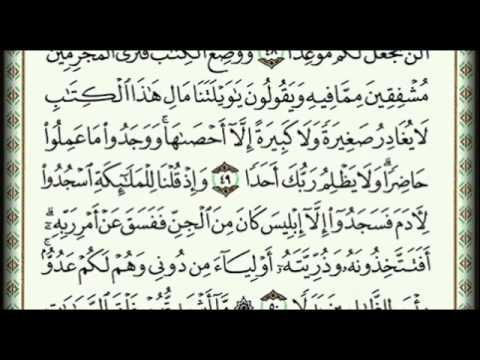 ألن نجعل لكم موعدا ٤٨ ووضع الكتب فترى المجرمين
مُشْفِقِينَ مِمَّا فِيهِ وَيَقُولُونَ يَٰوَيْلَتَنَا مَالِ هَٰذَا ٱلْكِتَٰبِ
لَا يُغَادِرُ صَغِيرَةً وَلَا كَبِيرَةً إِلَّآ أَحْصَىٰهَا ۚ وَوَجَدُوا۟ مَا عَمِلُوا۟
حَاضِرًا ۗ وَلَا يَظْلِمُ رَبُّكَ أَحَدًا ٤٩ وَإِذْ قُلْنَا لِلْمَلَٰٓئِكَةِ ٱسْجُدُوا۟
لِءَادَمَ فَسَجَدُوٓا۟ إِلَّآ إِبْلِيسَ كَانَ مِنَ ٱلْجِنِّ فَفَسَقَ عَنْ أَمْرِ رَبِّهِۦٓ ۗ
أَفَتَتَّخِذُونَهُۥ وَذُرِّيَّتَهُۥٓ أَوْلِيَآءَ مِن دُونِى وَهُمْ لَكُمْ عَدُوٌّۢ ۚ